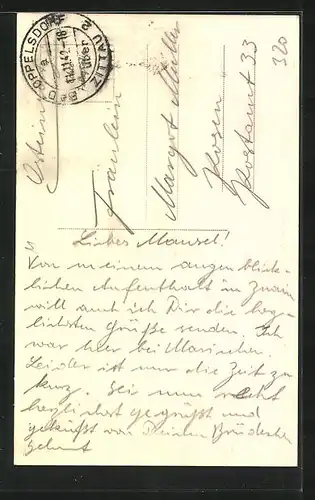 OPPELSDORF
über ZITTAU 2
14.11.42.-18
Fräulein
Margot Müller
Posen
Postamt 33
320
Liebes Mausel!
Von meinem augenblick-
lichen Aufenthalt in Znaim
will auch ich Dir die herz-
lichsten Grüße senden. Ich
war hier bei Marischen.
Leider ist nur die Zeit zu
kurz. Sei nun recht
herzlichst gegrüßt und
geküßt von Deinem Brüderchen